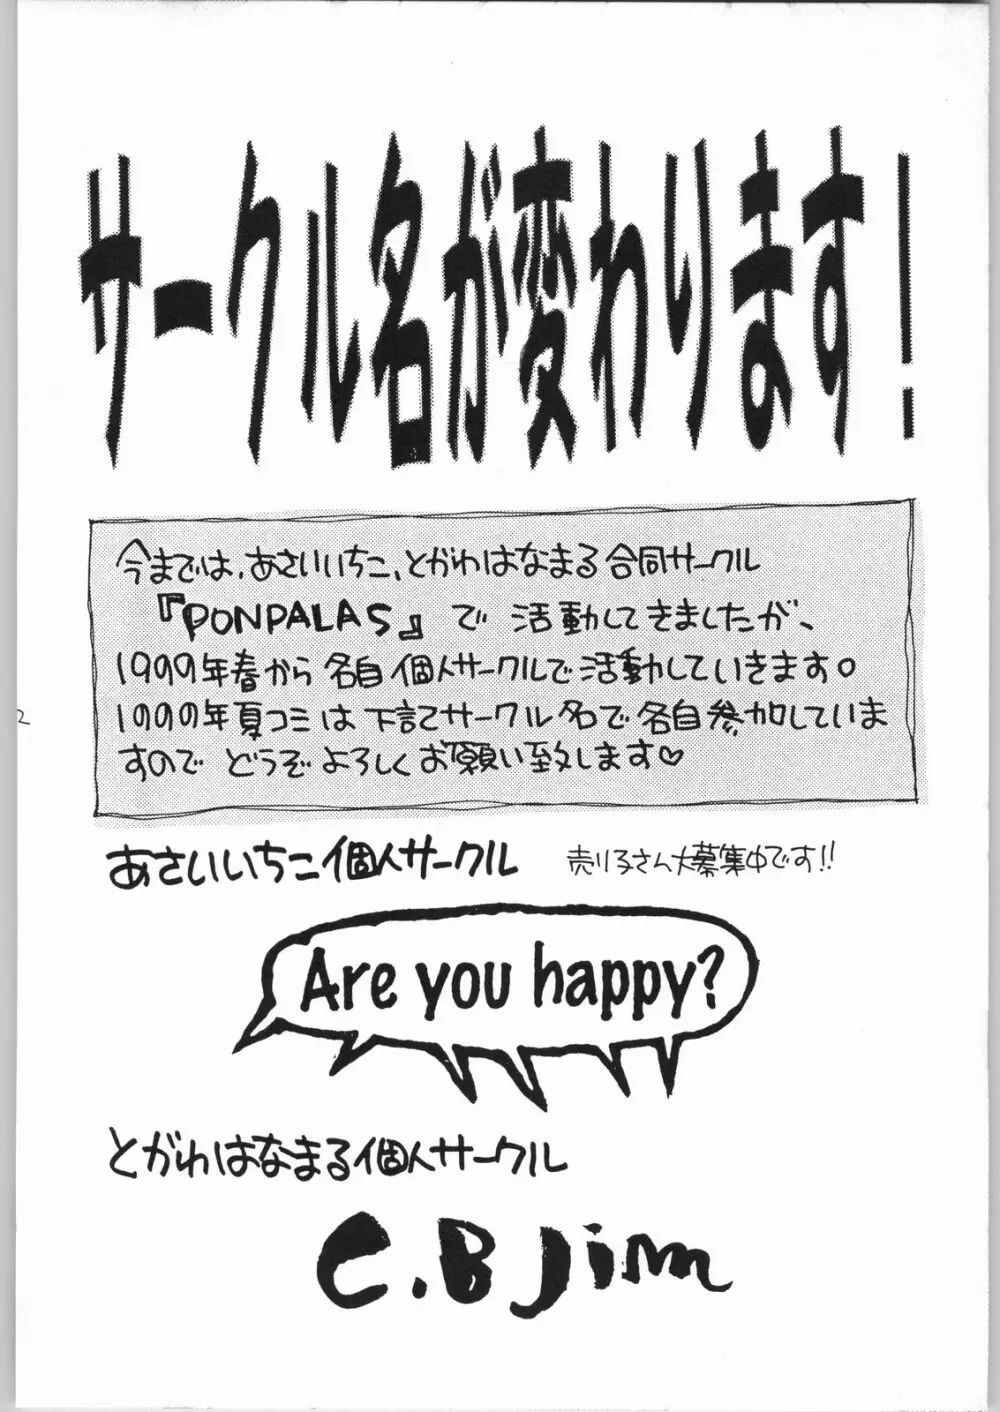 サークル名が変わります!
今までは、あさいいちこ、とがわはなまる合同サークル
『PONPALAS』で活動してきましたが、
1999年春から名自個人サークルで活動していきます。
1999年夏コミは下記サークル名で名自参加していま
すのでどうぞよろしくお願い致します♡
2
あさいいちこ個人サークル
売り子さん大募集中です!!
Are you happy?
とがわはなまる個人サークル
C.B Jim